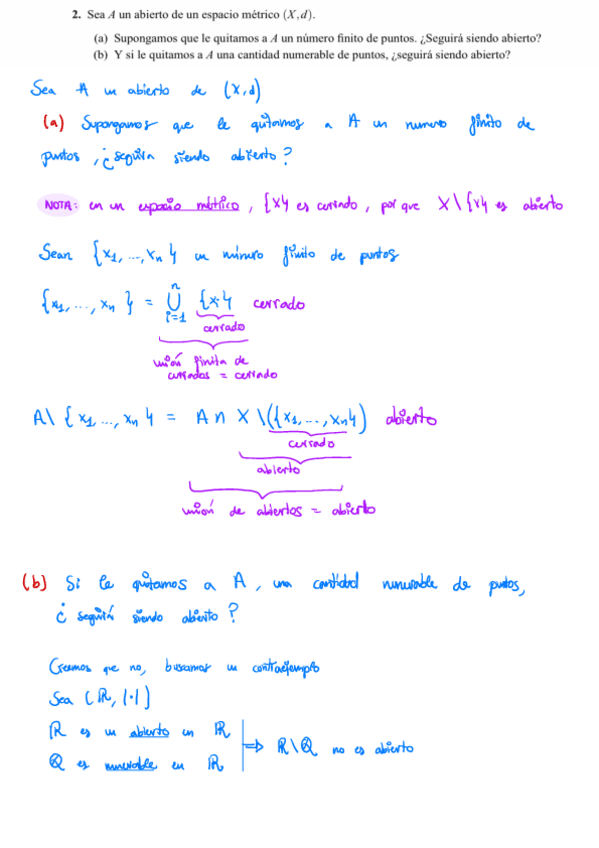 2. Sea A un abierto de un espacio métrico (X,d).
(a) Supongamos que le quitamos a A un número finito de puntos. ¿Seguirá siendo abierto?
(b) Y si le quitamos a A una cantidad numerable de puntos, ¿seguirá siendo abierto?
Sea A un abierto de (X,d)
(a) Supongamos que le quitamos a A un numero finito de
puntos, ¿seguira siendo abierto?
NOTA: en un espacio métrico, {x} es cerrado, por que X\{x} es abierto
Sean {x₁, ..., xₙ} un número finito de puntos
{x₁, ..., xₙ} = ⋃ᵢ₌₁ⁿ {xᵢ} cerrado
cerrado
unión finita de
cerrados = cerrado
A\{x₁, ..., xₙ} = A ∩ X\({x₁, ..., xₙ}) abierto
cerrado
abierto
unión de abiertos = abierto
(b) Si le quitamos a A, una cantidad numerable de puntos,
¿seguirá siendo abierto?
Creemos que no, buscamos un contraejemplo
Sea (ℝ, |·|)
ℝ es un abierto en ℝ
⇒ ℝ\ℚ no es abierto
ℚ es numerable en ℝ